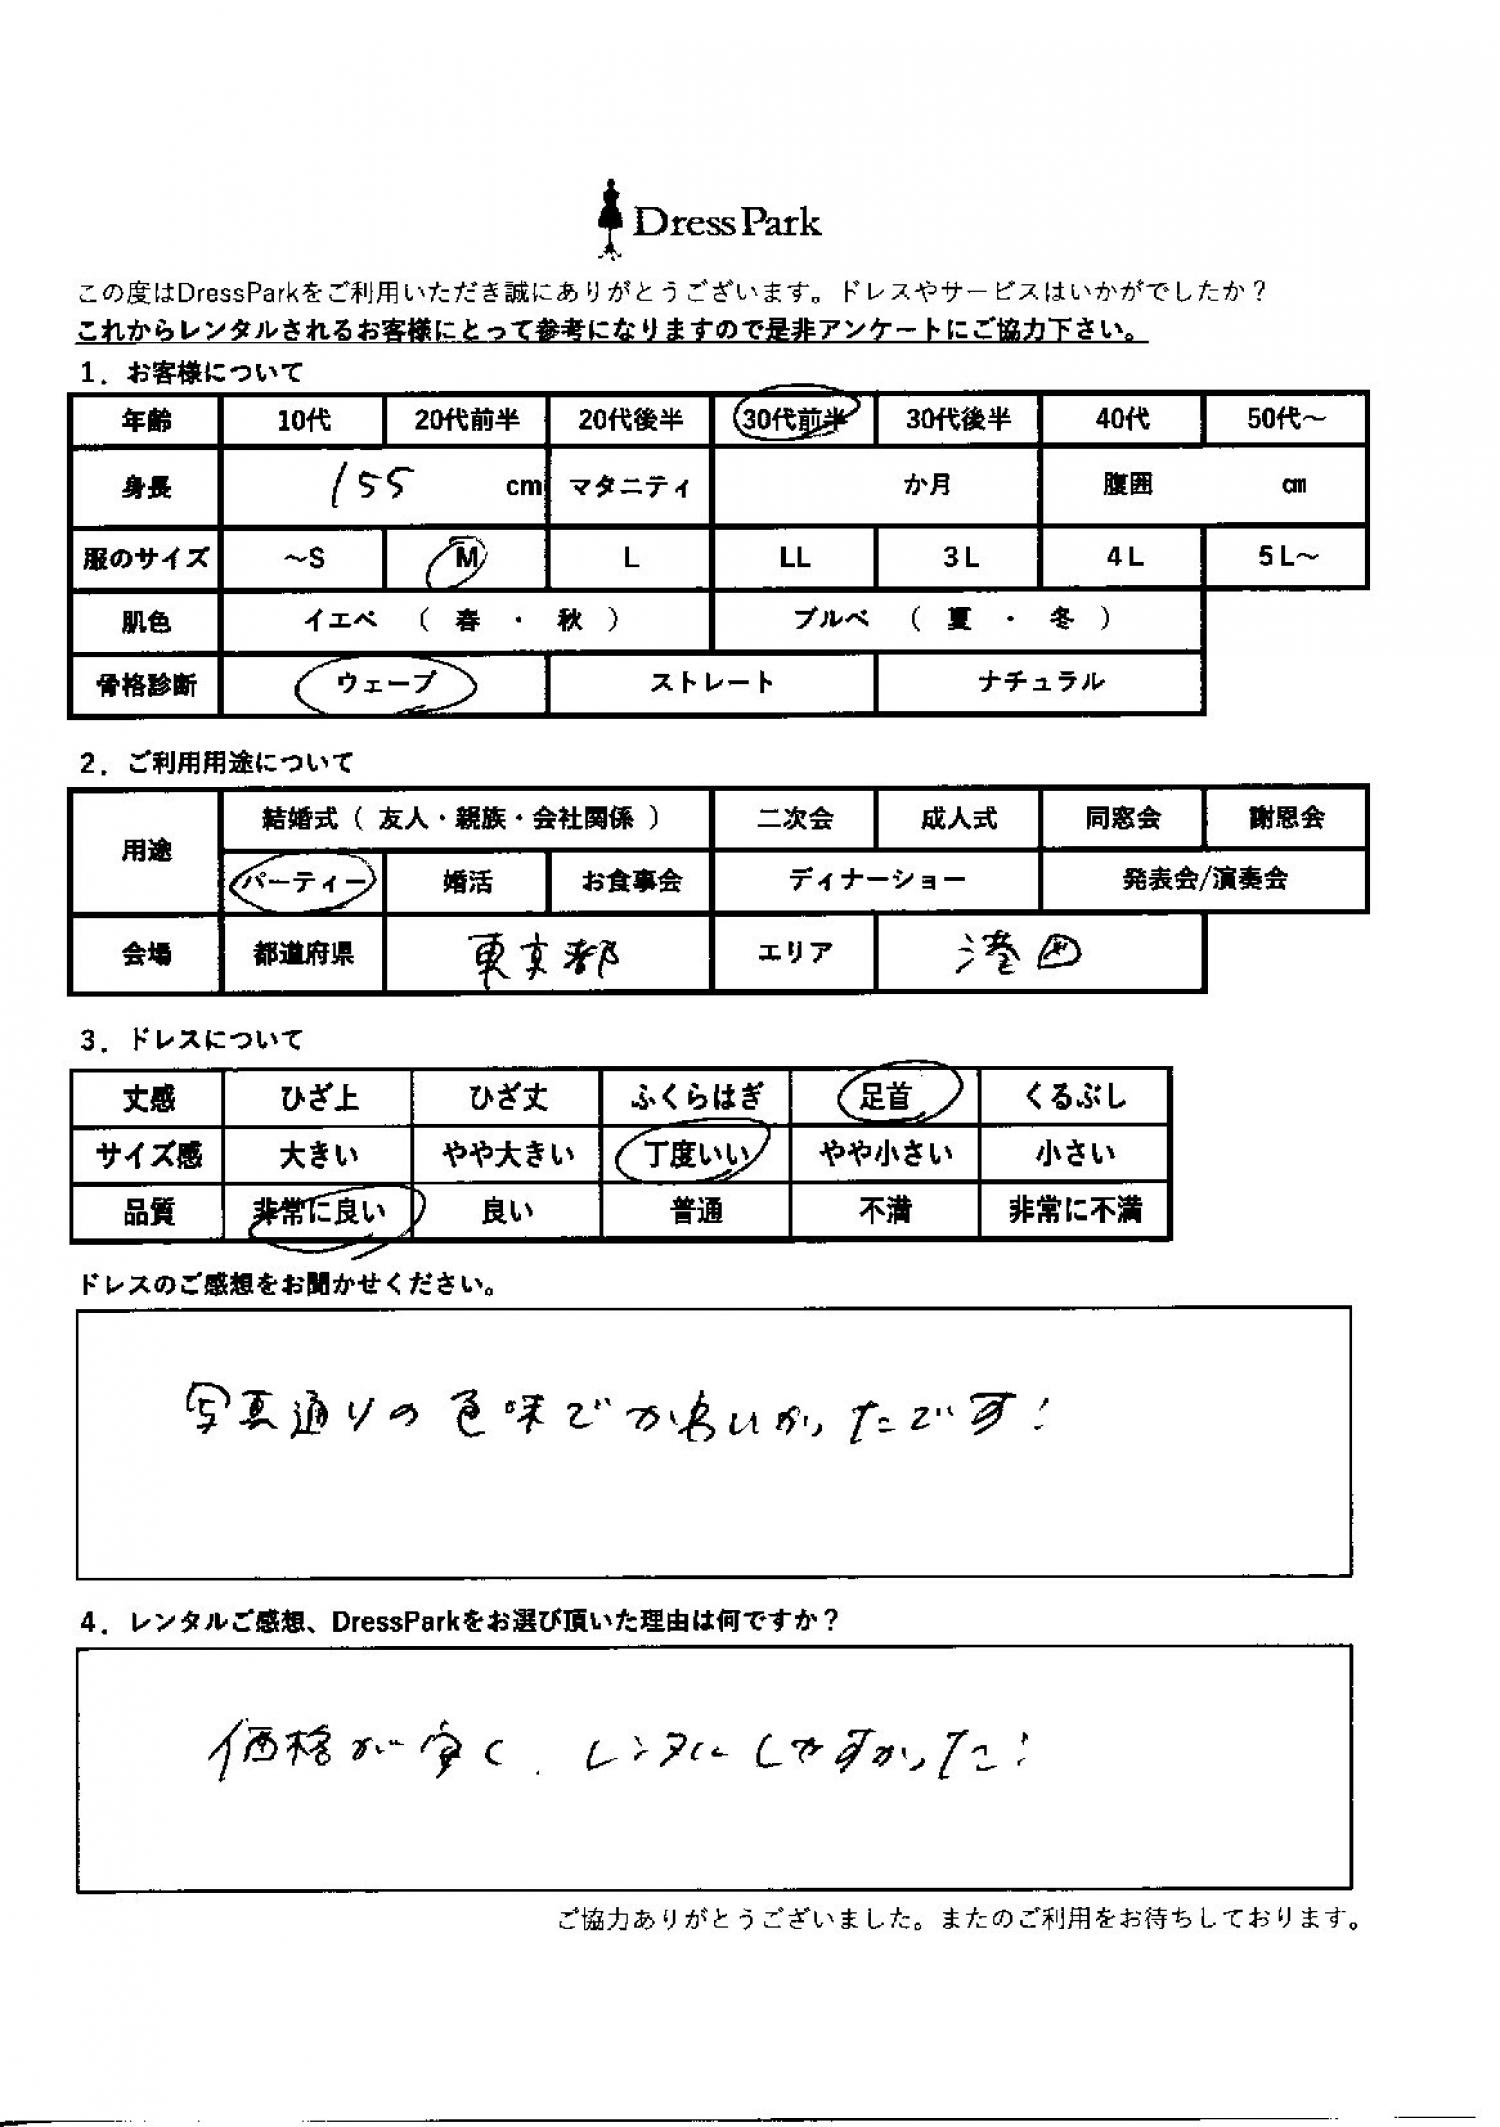 Dress Park
この度はDressParkをご利用いただき誠にありがとうございます。ドレスやサービスはいかがでしたか？
これからレンタルされるお客様にとって参考になりますので是非アンケートにご協力下さい。
1．お客様について
年齢 10代 20代前半 20代後半 30代前半 30代後半 40代 50代～
身長 155 cm マタニティ か月 腹囲 ㎝
服のサイズ ～S M L LL 3L 4L 5L～
肌色 イエベ （ 春 ・ 秋 ） ブルベ （ 夏 ・ 冬 ）
骨格診断 ウェーブ ストレート ナチュラル
2．ご利用用途について
用途 結婚式（ 友人・親族・会社関係 ） 二次会 成人式 同窓会 謝恩会
パーティー 婚活 お食事会 ディナーショー 発表会/演奏会
会場 都道府県 東京都 エリア 港区
3．ドレスについて
丈感 ひざ上 ひざ丈 ふくらはぎ 足首 くるぶし
サイズ感 大きい やや大きい 丁度いい やや小さい 小さい
品質 非常に良い 良い 普通 不満 非常に不満
ドレスのご感想をお聞かせください。
写真通りの色味でか良いかったです！
4．レンタルご感想、DressParkをお選び頂いた理由は何ですか？
価格が安く、レンタルしやすかった！
ご協力ありがとうございました。またのご利用をお待ちしております。